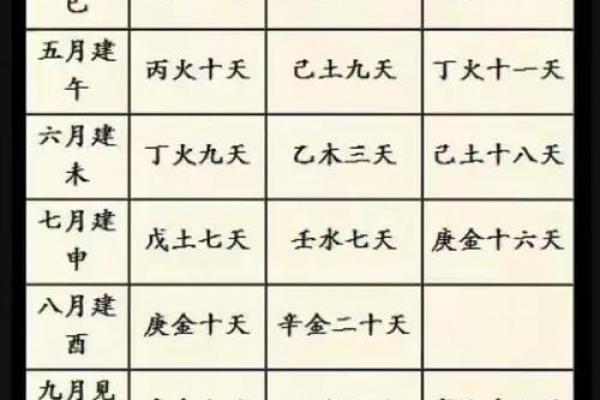 巳
五月建
午
丙火十天
己土九天
丁火十一天
六月建
未
丁火九天
乙木三天
己土十八天
七月建
申
戊土七天
壬水七天
庚金十六天
八月建
酉
庚金十天
辛金二十天
九月见